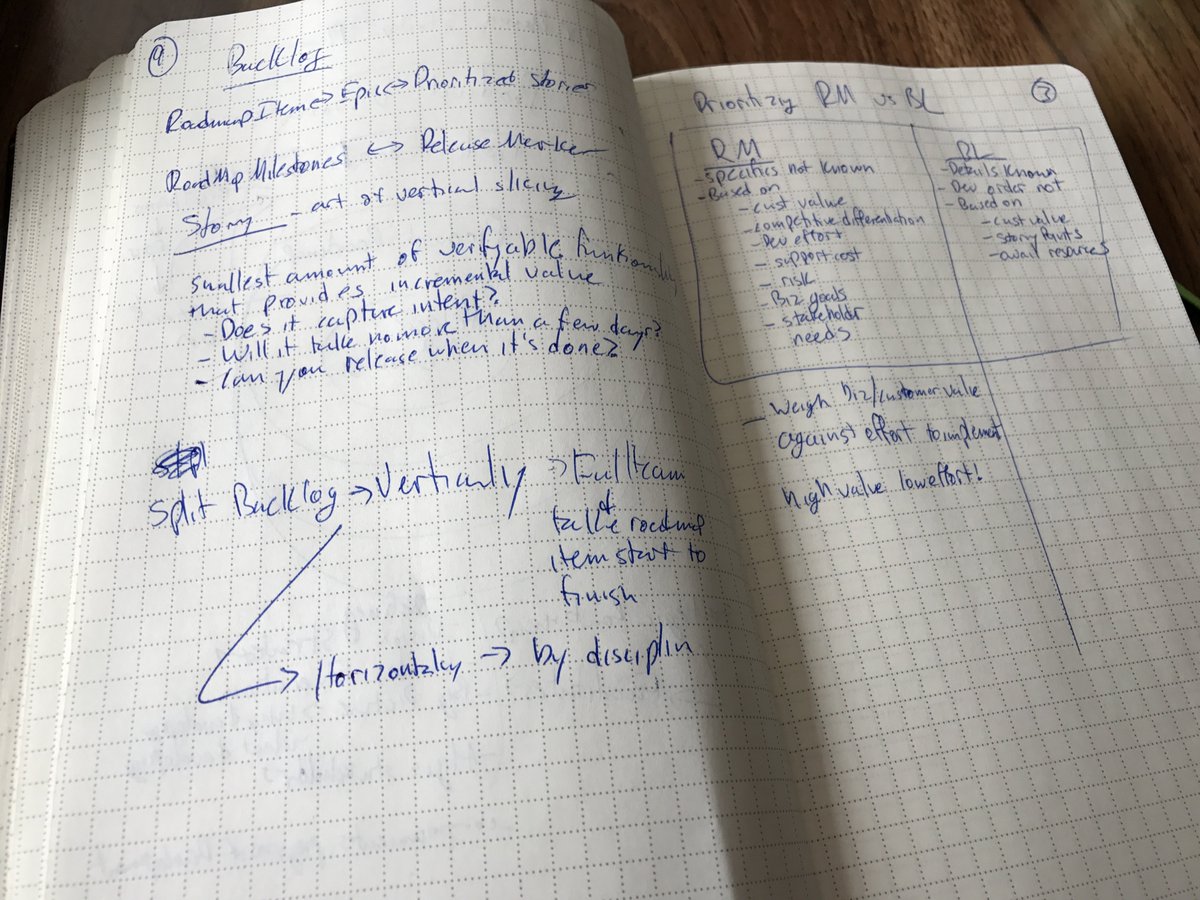 9
Backlog
Roadmap Items → Epics → Prioritized Stories
Roadmap Milestones ↔ Release Marker
Story - art of vertical slicing
Smallest amount of verifyable funktionality
that provides incremental value
- Does it capture intent?
- Will it take no more than a few days?
- Can you release when it's done?
Split Backlog → Vertically → Full team
take roadmap
item start to
finish
→ Horizontally → by disciplin
Prioritizing RM vs BL
RM
- Specifics not known
- Based on
- cust value
- competitive differentiation
- Dev effort
- support cost
- risk
- Biz goals
- stakeholdr
needs
BL
- Details known
- Dev order not
- Based on
- cust value
- story points
- avail resources
- Weigh biz/customer value
against effort to implement
high value low effort!